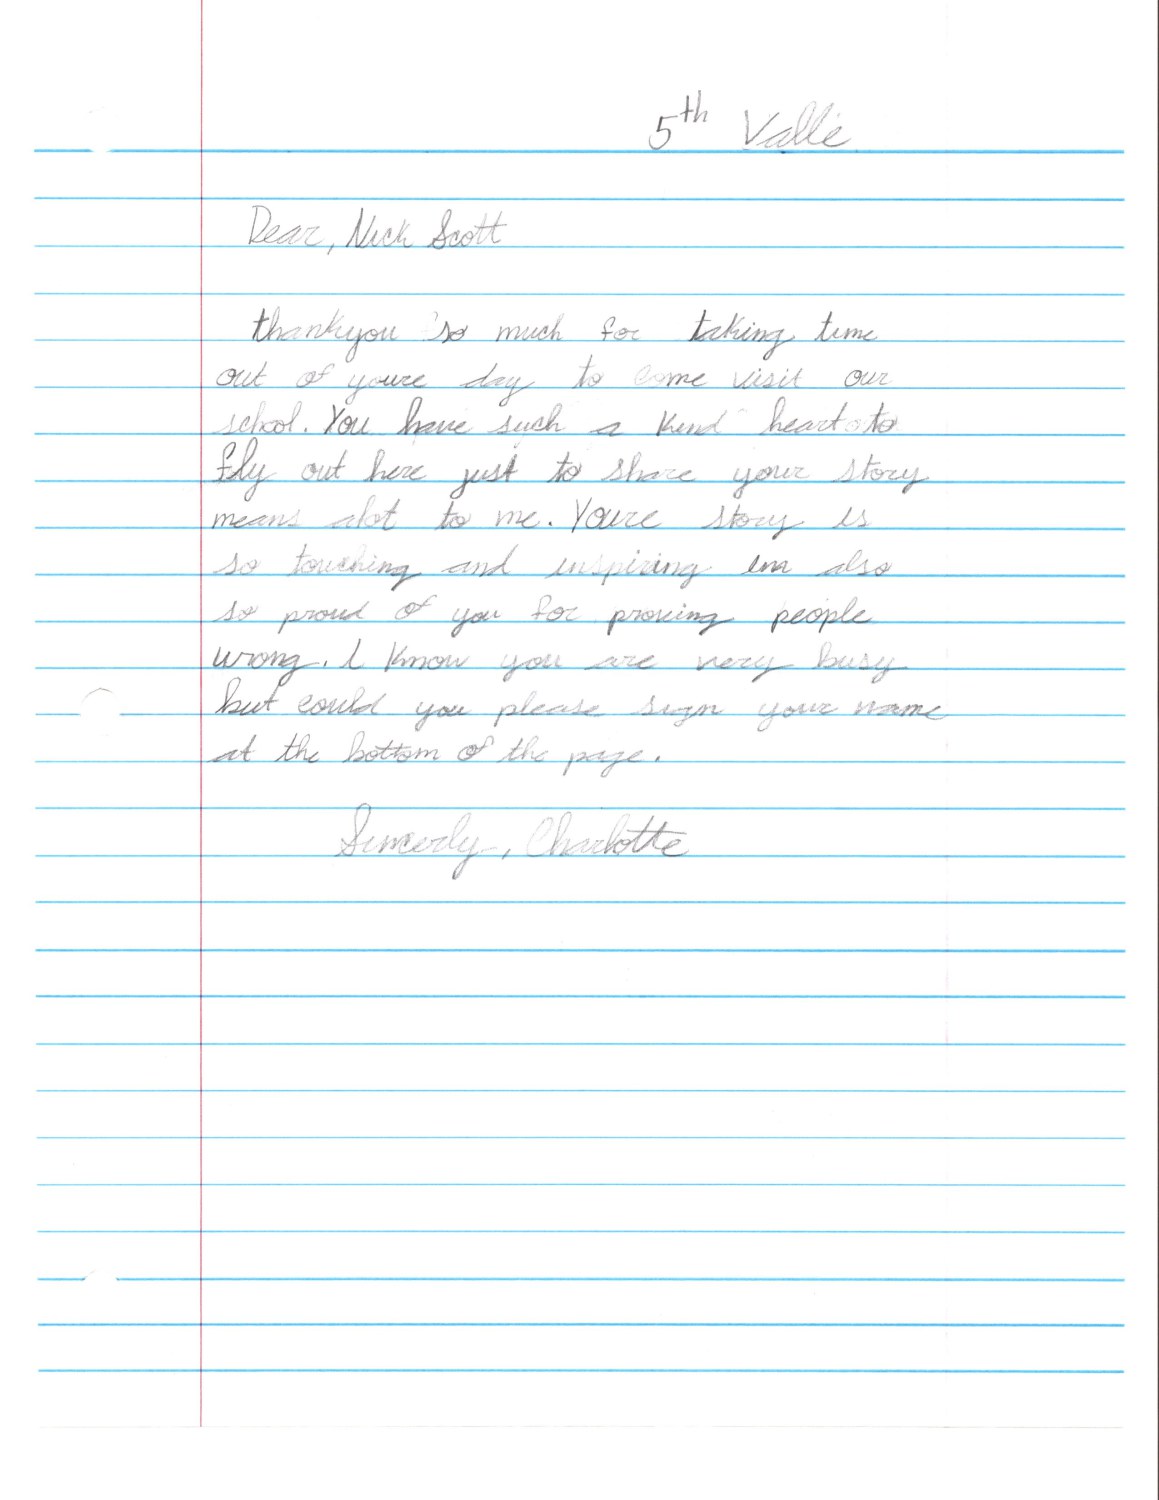 5th Valle
Dear, Nick Scott
thankyou so much for taking time
out of youre day to come visit our
school. You have such a kind heart to
fly out here just to share your story
means alot to me. Youre story is
so touching and inspiring im also
so proud of you for proving people
wrong. I know you are very busy
but could you please sign your name
at the bottom of the page.
Sincerly, Charlotte